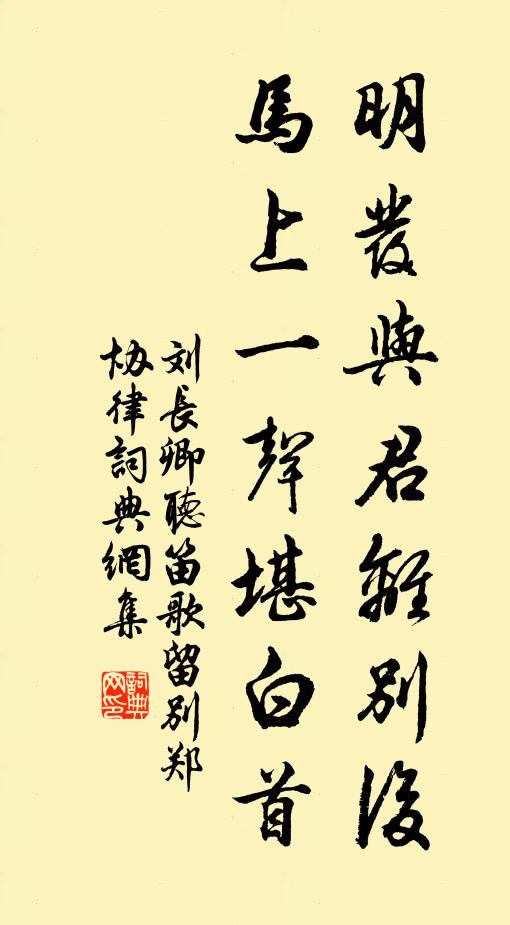 明發與君離別後
馬上一聲堪白首
刘長卿聽笛歌留別郑
协律詞典網集
詞典
网印